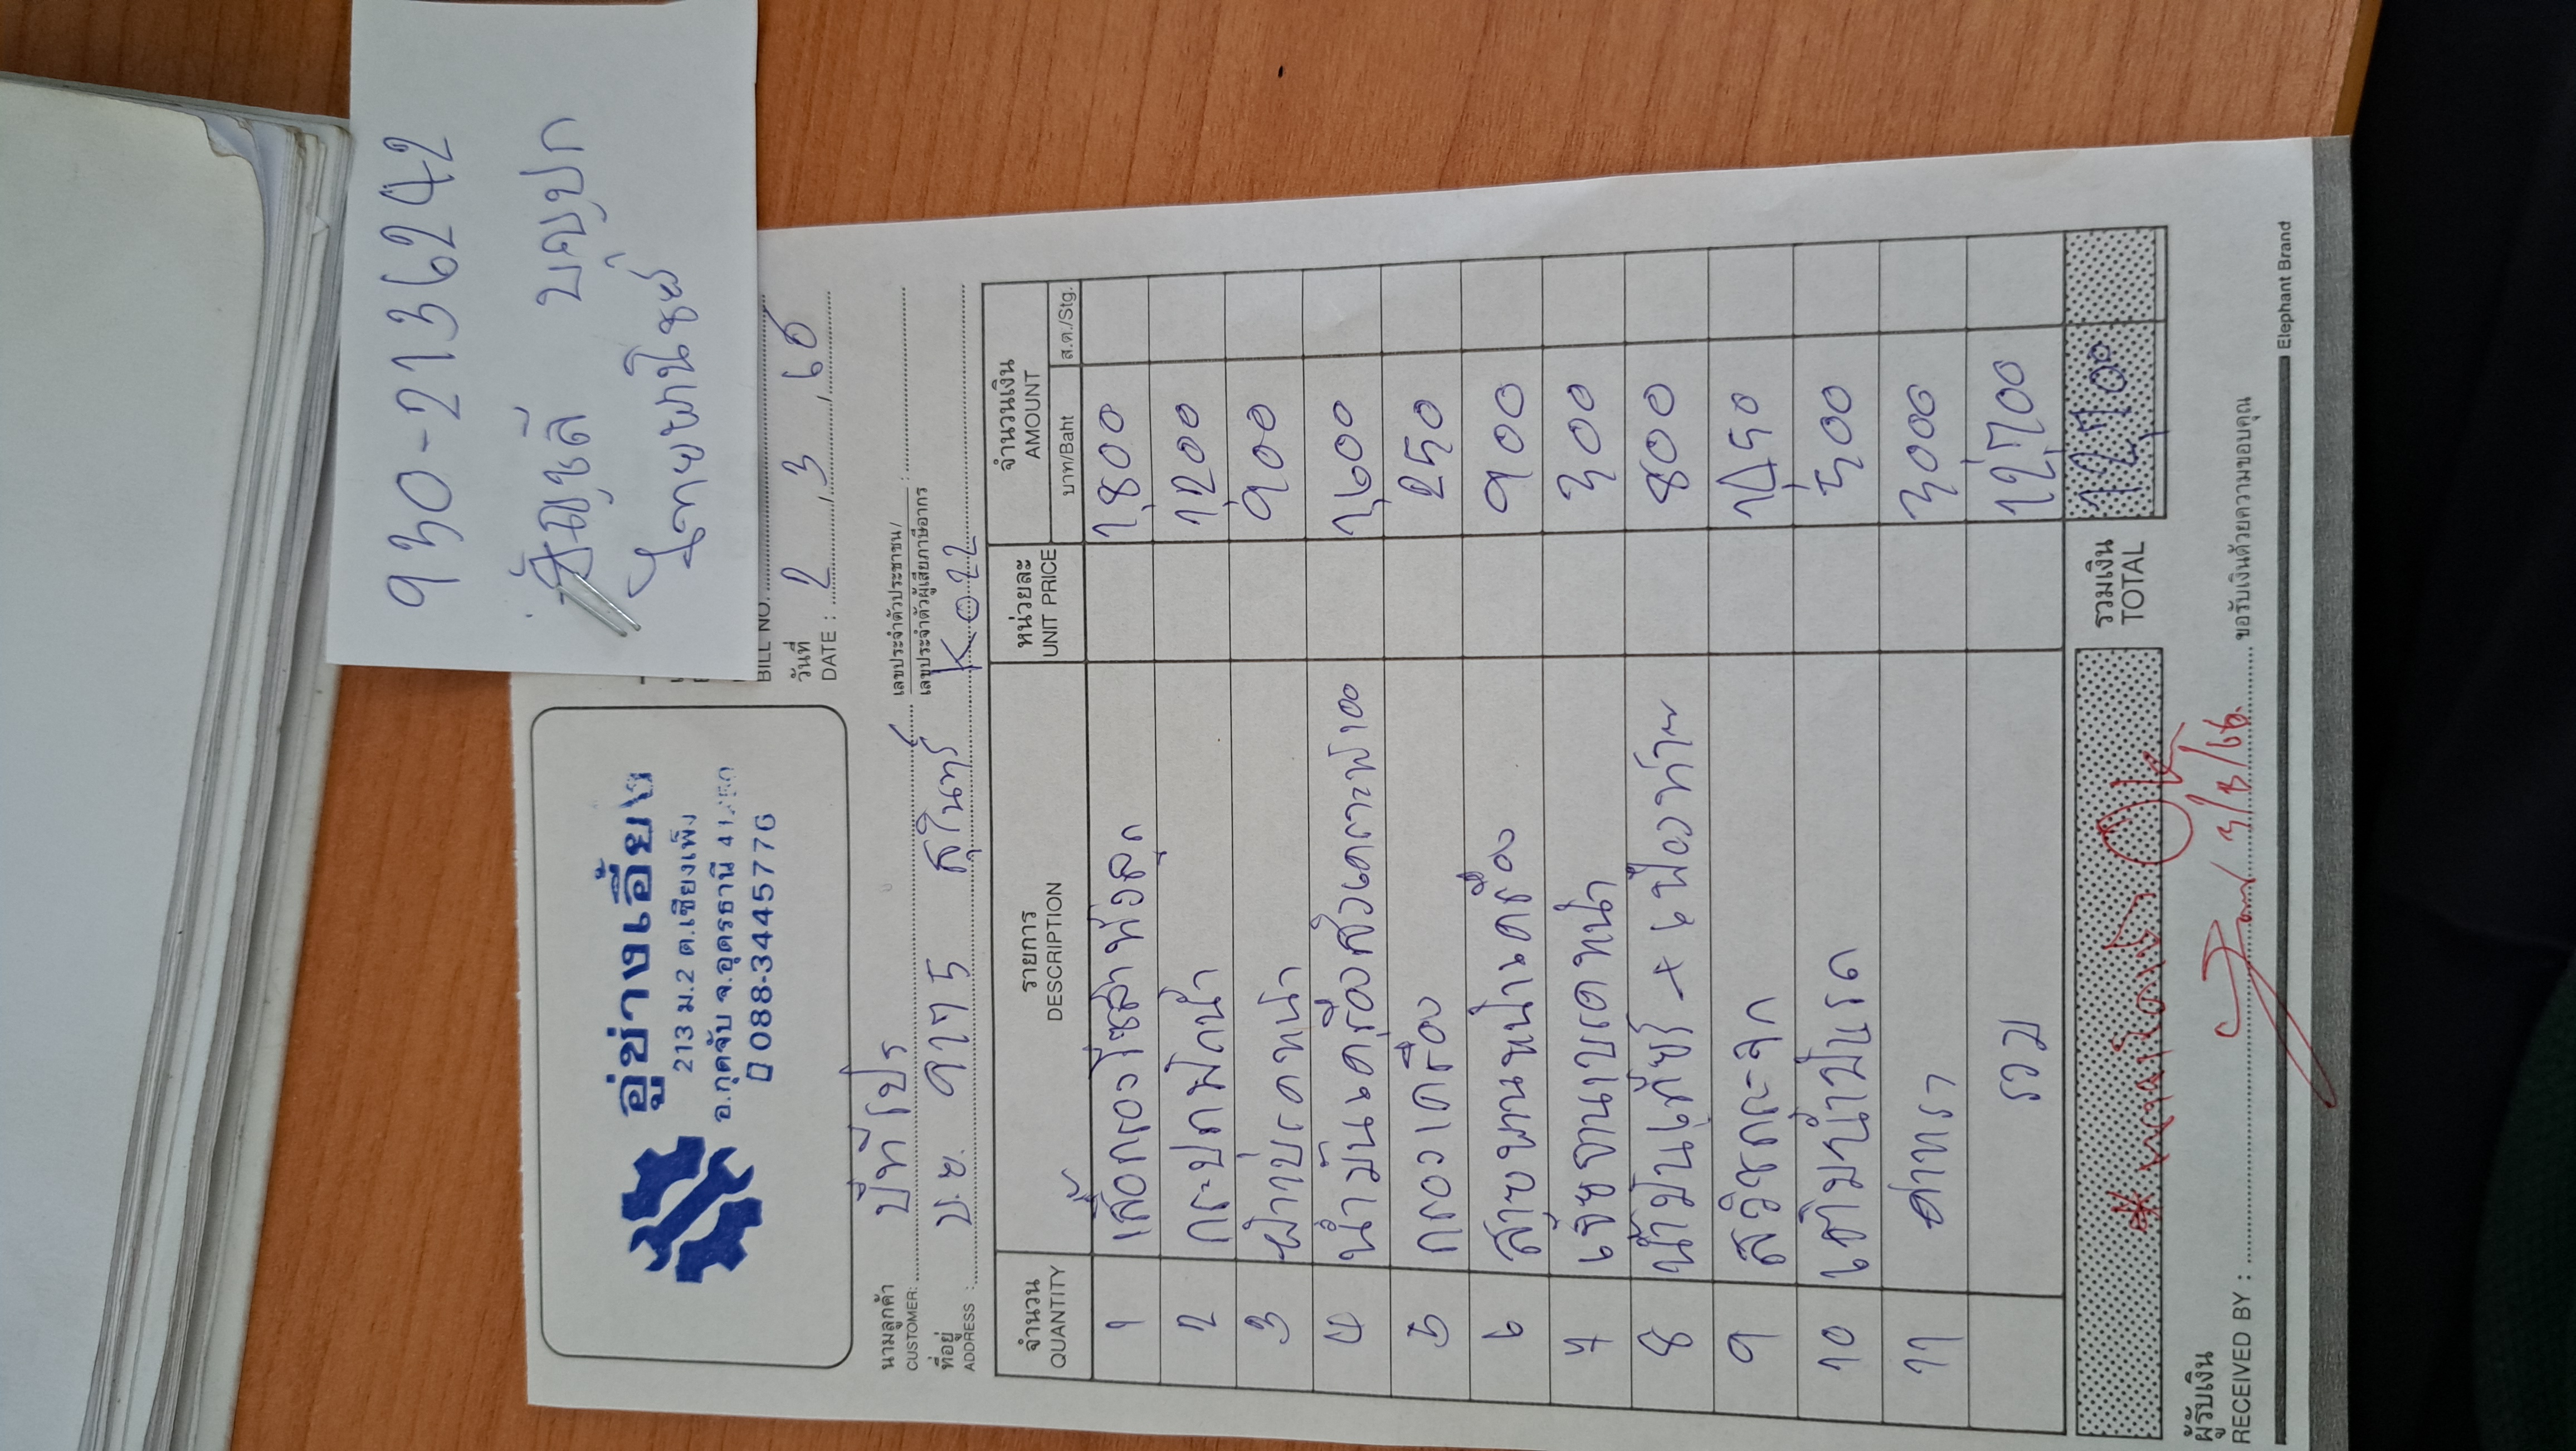 930-2136242
อัญชลี บุญปก
ไทยพาณิชย์
อู่ช่างเอี้ยง
213 ม.2 ต.เชียงเพ็ง
อ.กุดจับ จ.อุดรธานี
088-3445776
BILL NO.
วันที่
DATE : 2 / 3 / 66
นามลูกค้า
CUSTOMER: บีทีโปร
เลขประจำตัวประชาชน/
เลขประจำตัวผู้เสียภาษีอากร
ที่อยู่
ADDRESS : บ.ย. สุรินทร์ K022
จำนวน QUANTITY รายการ DESCRIPTION หน่วยละ UNIT PRICE จำนวนเงิน AMOUNT
บาท/Baht ส.ต./Stg.
1 เสื้อกรองโซล่าทั้งลูก 1,800
2 กระปุกฉีดน้ำ 1200
3 ผ้าเบรคหน้า 900
4 น้ำมันเครื่องสังเคราะห์แท้ 1,600
5 กรองเครื่อง 250
6 สายพานหน้าเครื่อง 900
7 เจียจานเบรคหน้า 300
8 น้ำมันเกียร์ + เฟืองท้าย 800
9 สวิชกระจก 1,450
10 เติมน้ำมันเบรค 500
11 ค่าแรง 3000
รวม 12,700
รวมเงิน
TOTAL 12,700
OK
3/3/66
ผู้รับเงิน
RECEIVED BY : ขอรับเงินด้วยความขอบคุณ
Elephant Brand